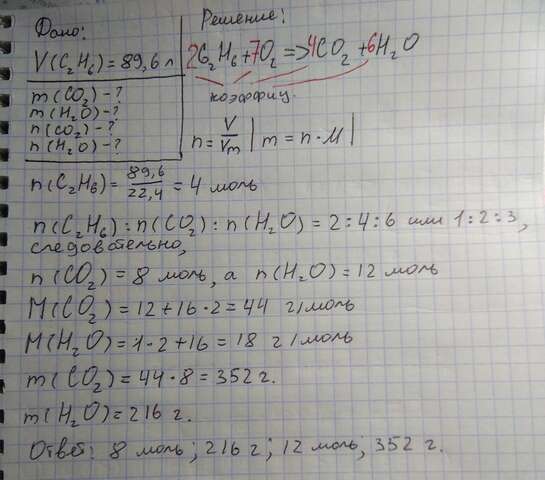 Дано:
V(C₂H₆) = 89,6 л
m(CO₂) - ?
m(H₂O) - ?
n(CO₂) - ?
n(H₂O) - ?
Решение:
2C₂H₆ + 7O₂ => 4CO₂ + 6H₂O
коэффиц.
n = V/Vm | m = n · M |
n(C₂H₆) = 89,6/22,4 = 4 моль
n(C₂H₆) : n(CO₂) : n(H₂O) = 2:4:6 или 1:2:3,
следовательно,
n(CO₂) = 8 моль, а n(H₂O) = 12 моль
M(CO₂) = 12 + 16 · 2 = 44 г/моль
M(H₂O) = 1 · 2 + 16 = 18 г/моль
m(CO₂) = 44 · 8 = 352 г.
m(H₂O) = 216 г.
Ответ: 8 моль; 216 г; 12 моль; 352 г.